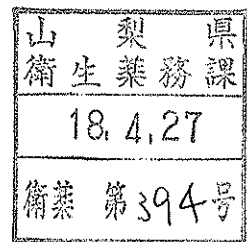 山梨県
衛生薬務課
18.4.27
衛薬 第394号